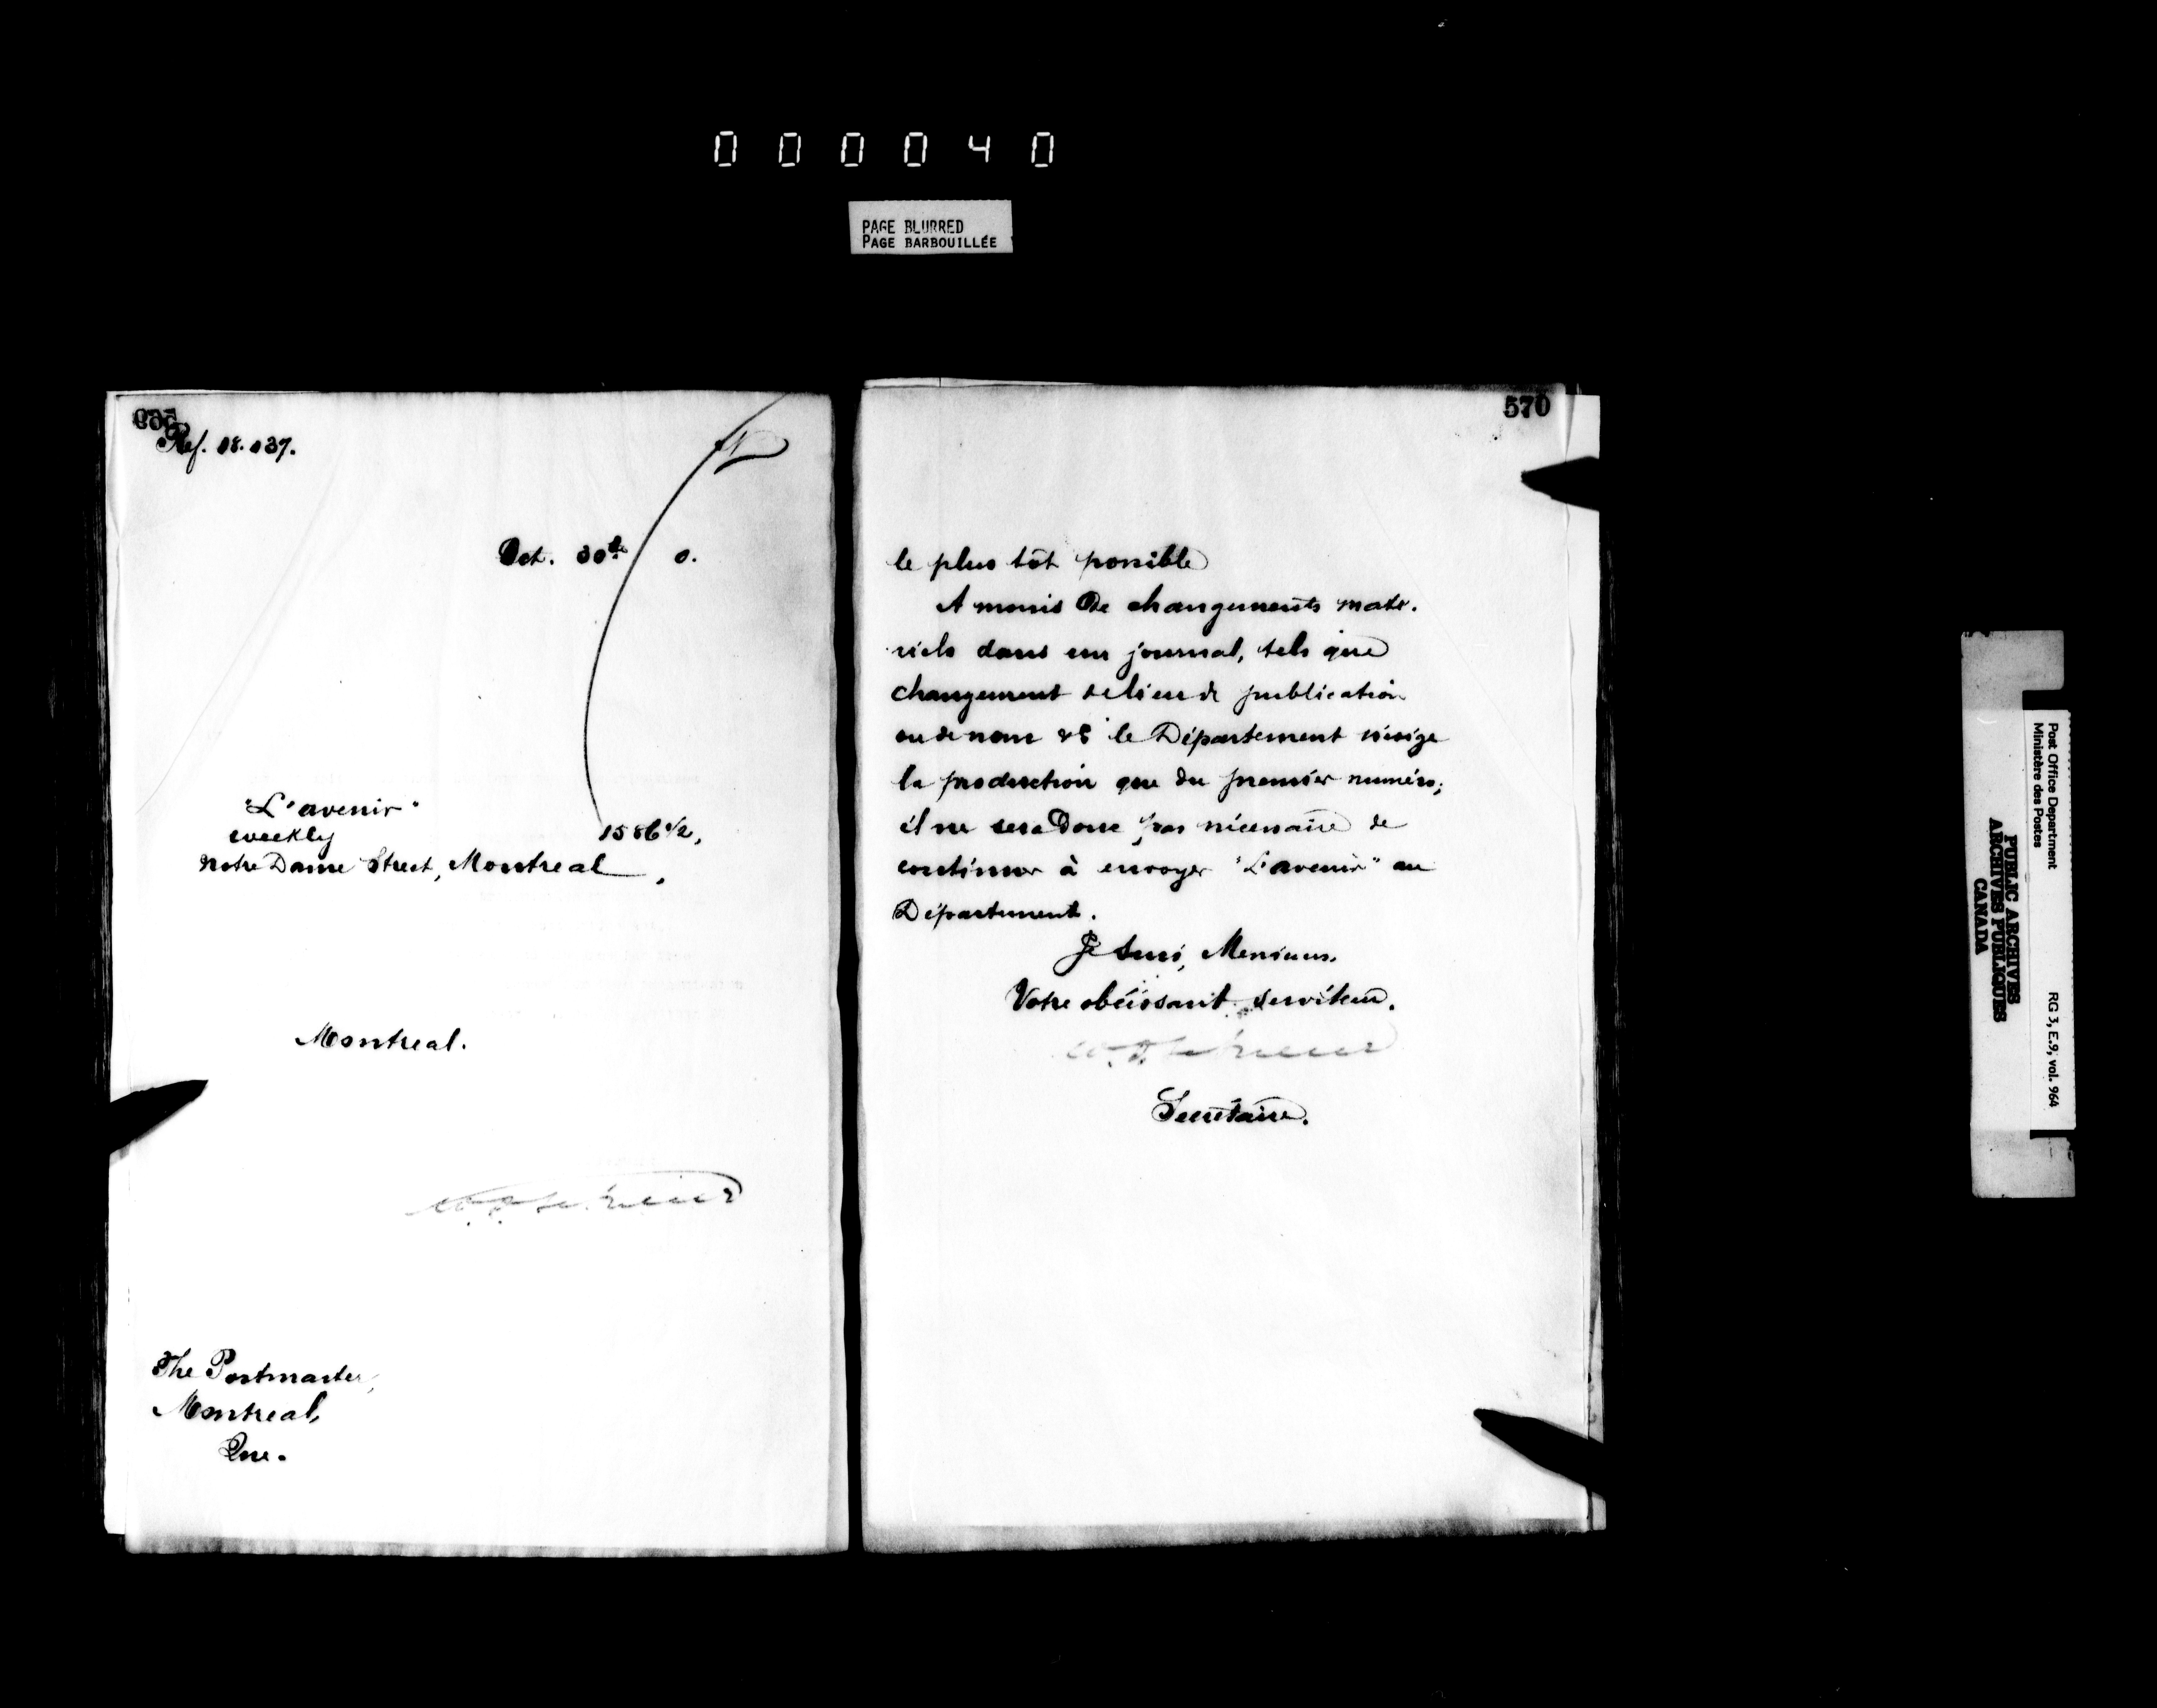 000040
PAGE BLURRED
PAGE BARBOUILLÉE
Ref. 18.037.
Oct. 30th 0.
"L'avenir"
weekly 1586½,
Notre Dame Street, Montreal.
Montreal.
The Postmaster,
Montreal,
Que.
570
le plus tôt possible
A moins de changements maté-
riels dans un journal, tels que
changement de lieu de publication
ou de nom &c le Département n'exige
la production que du premier numéro;
il ne sera donc pas nécessaire de
continuer à envoyer "L'avenir" au
Département.
Je suis, Messieurs,
Votre obéissant serviteur.
Secrétaire.
Post Office Department
Ministère des Postes
RG 3, E.9, vol. 964
PUBLIC ARCHIVES
ARCHIVES PUBLIQUES
CANADA